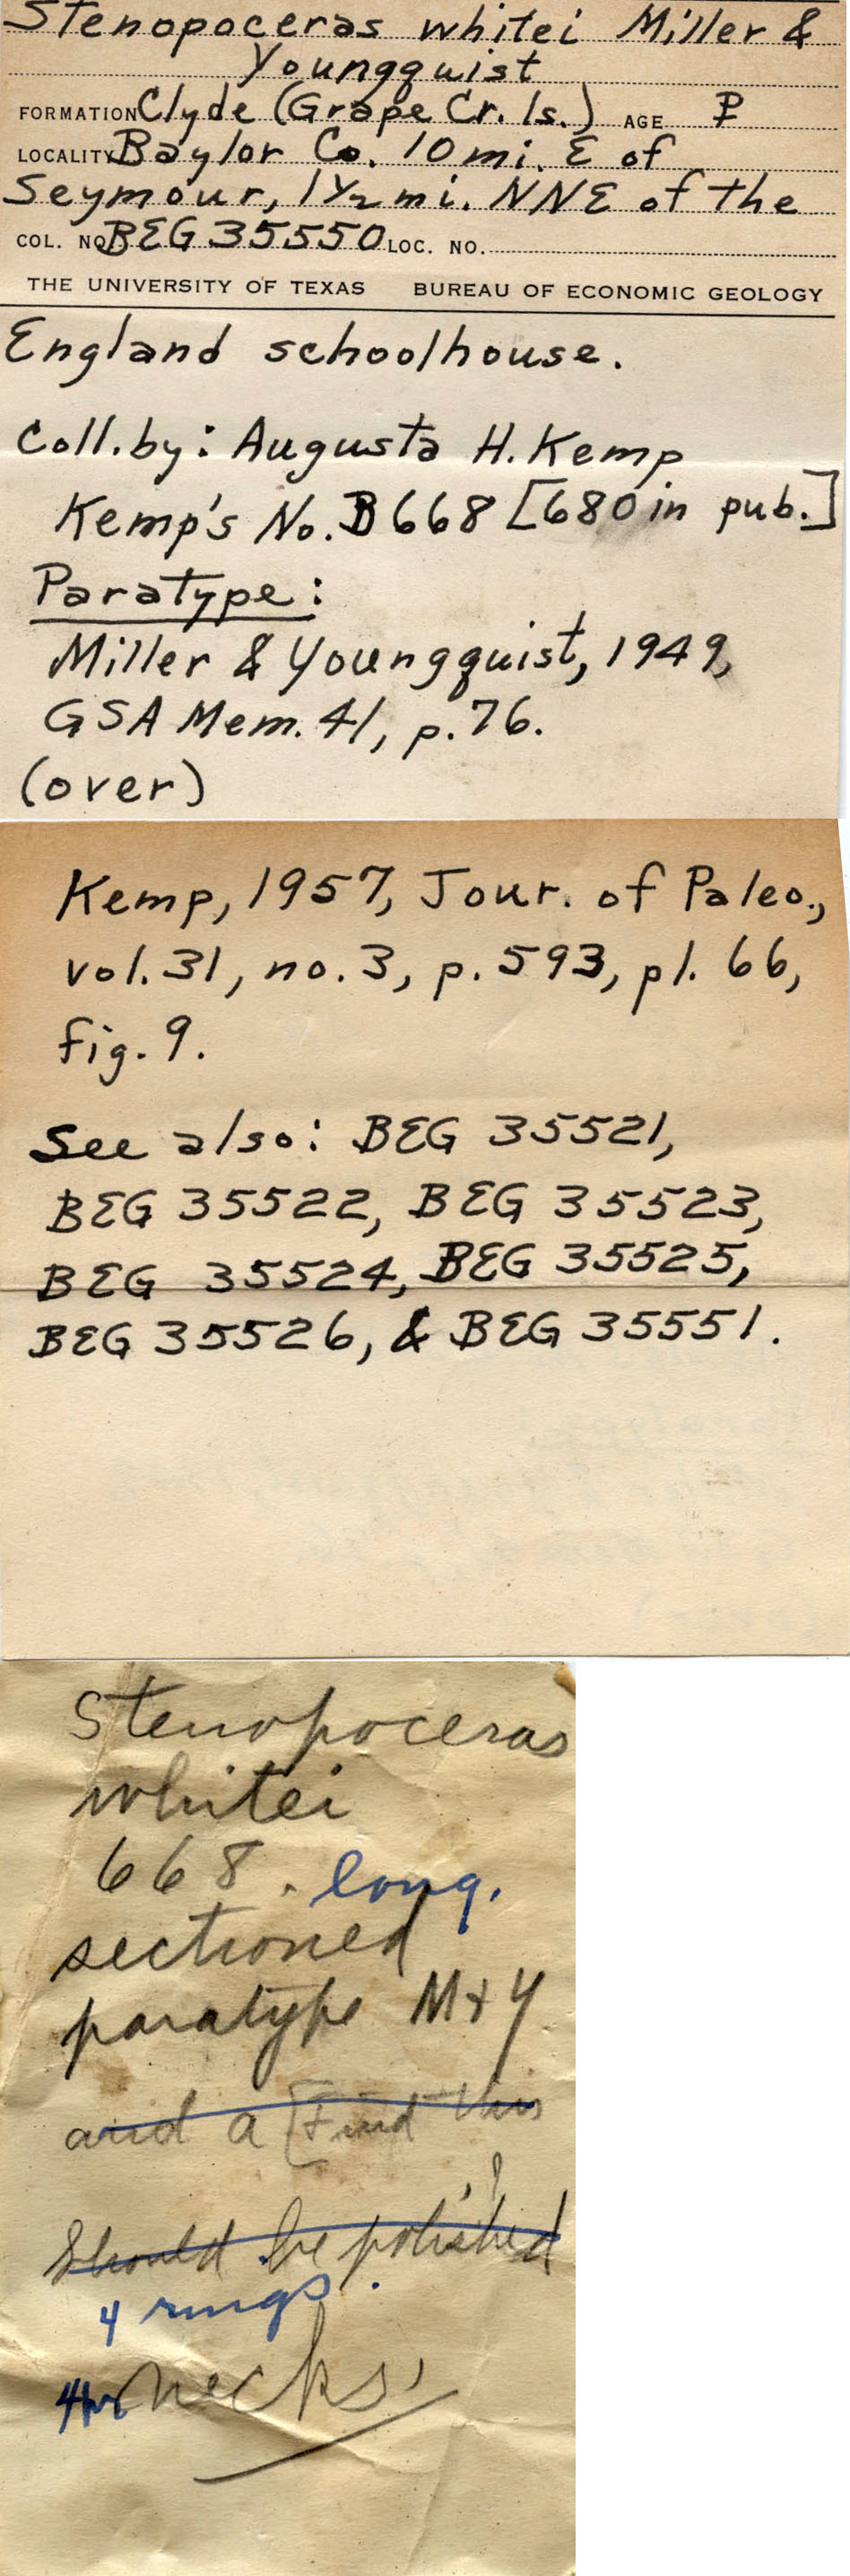 Stenopoceras whitei Miller &
Youngquist
FORMATION Clyde (Grape Cr. ls.) AGE P
LOCALITY Baylor Co. 10 mi. E of
Seymour, 1 1/2 mi. NNE of the
COL. NO. BEG 35550 LOC. NO.
THE UNIVERSITY OF TEXAS BUREAU OF ECONOMIC GEOLOGY
England schoolhouse.
Coll. by: Augusta H. Kemp
Kemp's No. B668 [680 in pub.]
Paratype:
Miller & Youngquist, 1949,
GSA Mem. 41, p. 76.
(over)
Kemp, 1957, Jour. of Paleo.,
vol. 31, no. 3, p. 593, pl. 66,
fig. 9.
See also: BEG 35521,
BEG 35522, BEG 35523,
BEG 35524, BEG 35525,
BEG 35526, & BEG 35551.
Stenopoceras
whitei
668. long.
sectioned
paratype M + Y
and a [Find this
?
Should be polished
4 rings.
necks,